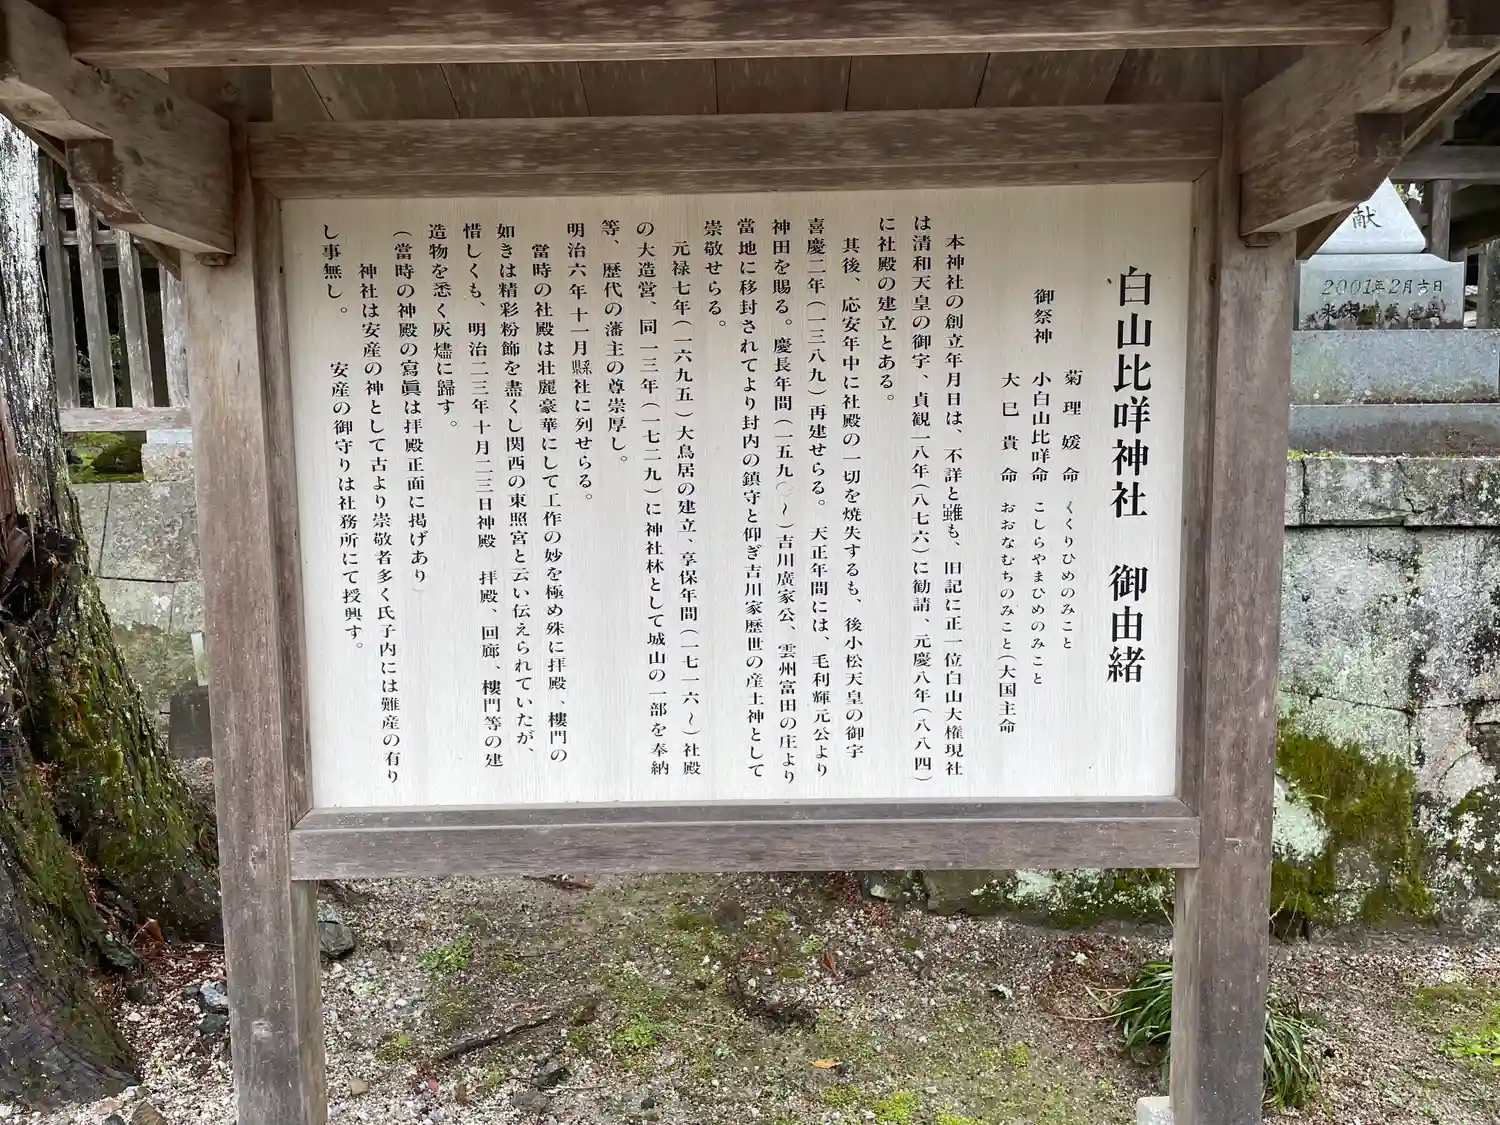 白山比咩神社　御由緒
御祭神
菊理媛命　くくりひめのみこと
小白山比咩命　こしらやまひめのみこと
大巳貴命　おおなむちのみこと（大国主命
本神社の創立年月日は、不詳と雖も、旧記に正一位白山大権現社
は清和天皇の御宇、貞観一八年（八七六）に勧請、元慶八年（八八四）
に社殿の建立とある。
其後、応安年中に社殿の一切を焼失するも、後小松天皇の御宇
喜慶二年（一三八九）再建せらる。天正年間には、毛利輝元公より
神田を賜る。慶長年間（一五九〇～）吉川廣家公、雲州富田の庄より
當地に移封されてより封内の鎮守と仰ぎ吉川家歴世の産土神として
崇敬せらる。
元禄七年（一六九五）大鳥居の建立、享保年間（一七一六～）社殿
の大造営、同一三年（一七二九）に神社林として城山の一部を奉納
等、歴代の藩主の尊崇厚し。
明治六年十一月縣社に列せらる。
當時の社殿は壮麗豪華にして工作の妙を極め殊に拝殿、樓門の
如きは精彩粉飾を盡くし関西の東照宮と云い伝えられていたが、
惜しくも、明治二三年十月二三日神殿　拝殿、回廊、樓門等の建
造物を悉く灰燼に帰す。
（當時の神殿の寫眞は拝殿正面に掲げあり）
神社は安産の神として古より崇敬者多く氏子内には難産の有り
し事無し。　安産の御守りは社務所にて授興す。
献
2001年2月吉日